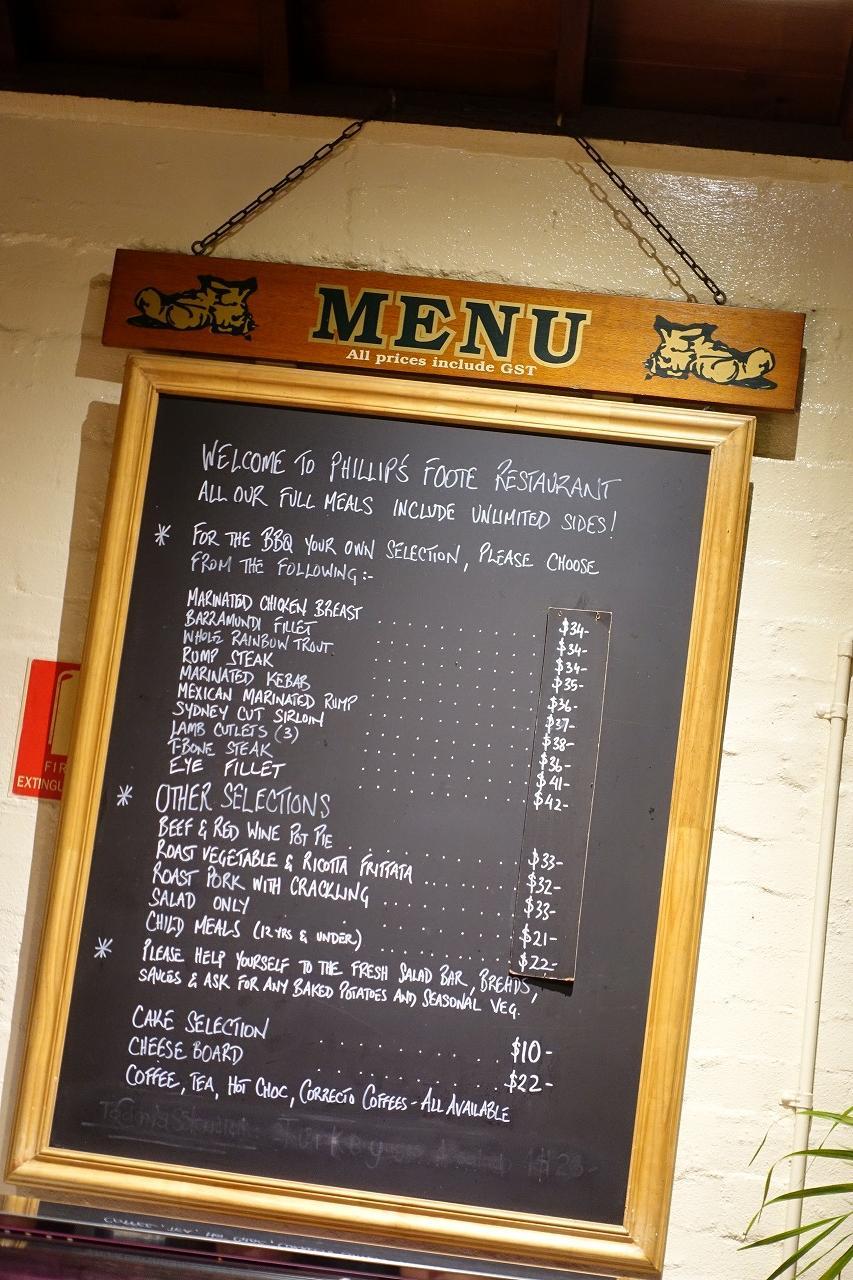 MENU
All prices include GST
WELCOME TO PHILLIP'S FOOTE RESTAURANT
ALL OUR FULL MEALS INCLUDE UNLIMITED SIDES!
* FOR THE BBQ YOUR OWN SELECTION, PLEASE CHOOSE
FROM THE FOLLOWING:-
MARINATED CHICKEN BREAST $34-
BARRAMUNDI FILLET $34-
WHOLE RAINBOW TROUT $34-
RUMP STEAK $35-
MARINATED KEBAB $36-
MEXICAN MARINATED RUMP $37-
SYDNEY CUT SIRLOIN $38-
LAMB CUTLETS (3) $36-
T-BONE STEAK $41-
EYE FILLET $42-
* OTHER SELECTIONS
BEEF & RED WINE POT PIE $33-
ROAST VEGETABLE & RICOTTA FRITTATA $32-
ROAST PORK WITH CRACKLING $33-
SALAD ONLY $21-
CHILD MEALS (12 YRS & UNDER) $22-
* PLEASE HELP YOURSELF TO THE FRESH SALAD BAR, BREADS,
SAUCES & ASK FOR ANY BAKED POTATOES AND SEASONAL VEG.
CAKE SELECTION $10-
CHEESE BOARD $22-
COFFEE, TEA, HOT CHOC, CORRECTO COFFEES - ALL AVAILABLE
Turkey
FIR
EXTINGU